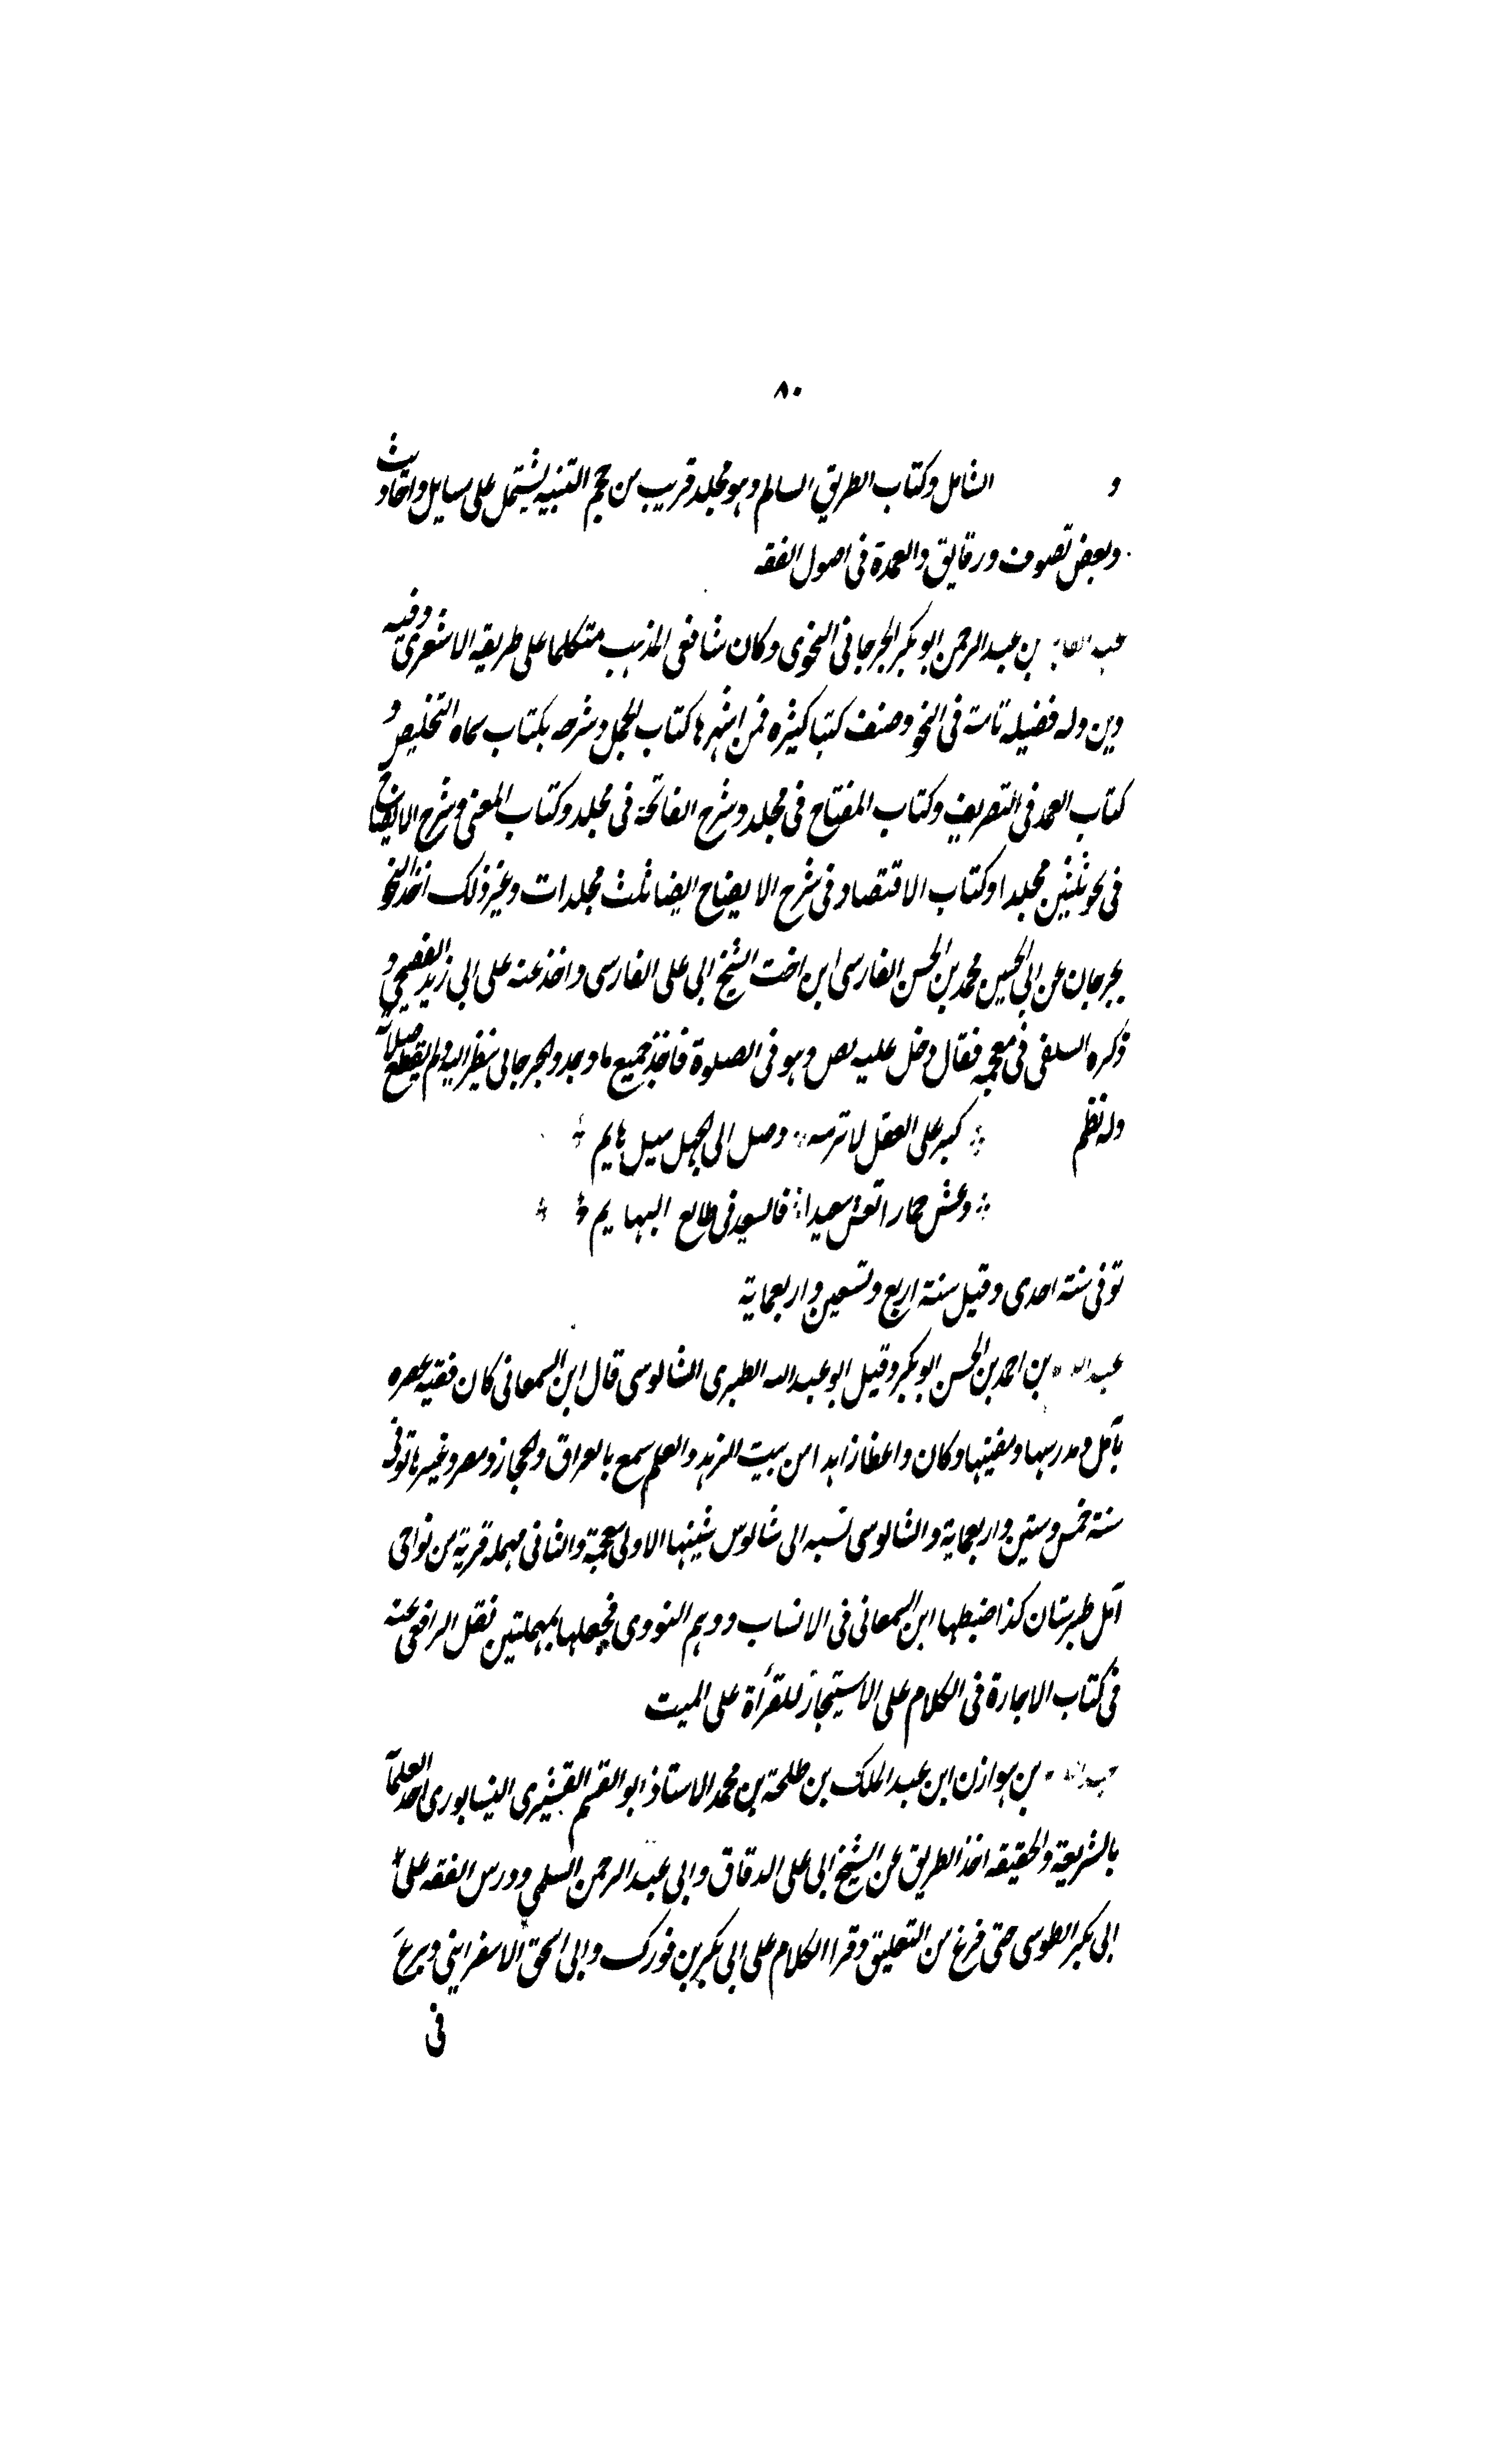 ٨٠
و الشامل وكتاب الطريق السالم وهو مجلد قريب من حجم التنبيه يشتمل على مسايل واحاديث
وبعض تصوف ورقايق والعمدة فى اصول الفقه
بن عبد الرحمن ابو بكر الجرجانى النحوى وكان شافعى المذهب متكلما على طريقه الاشعرى وفيه
دين وله فضيله تامة فى النحو وصنف كتبا كثيره فمن اشهرها كتاب الجمل وشرحه بكتاب سماه التخليص و
كتاب العمد فى التصريف وكتاب المفتاح فى مجلد وشرح الفاتحة فى مجلد وكتاب المغنى فى شرح الايضاح
فى نحو ثلثين مجلدا وكتاب الاقتصاد فى شرح الايضاح ايضا ثلث مجلدات وغير ذلك اخذ النحو
بجرجان عن ابى الحسين محمد بن الحسن الفارسى ابن اخت الشيخ ابى على الفارسى واخذ عنه على ابى زيد الفصيحى و
ذكره السلفى فى معجمه فقال دخل عليه لص وهو فى الصلوة فاخذ جميع ما وجد والجرجانى ينظر اليه ولم يقطع صلاته
وله نظم كبر على العقل لا ترمه وصل الى الجهل ميل هايم
وعش حمارا تعش سعيدا فالسعد فى طالع البهايم
توفى سنة احدى وقيل سنة اربع وتسعين واربعماية
بن احمد بن الحسن ابو بكر وقيل ابو عبد الله الطبرى الشالوسى قال ابن السمعانى كان فقيه عصره
بآمل ومدرسها ومفتيها وكان واعظا زاهدا من بيت الزهد والعلم سمع بالعراق والحجاز ومصر وغيرها توفى
سنة خمس وستين واربعماية والشالوسى نسبه الى شالوس شينها الاولى معجمة والثانى مهمله قرية من نواحى
آمل طبرستان كذا ضبطها ابن السمعانى فى الانساب ووهم النووى فجعلها بمهملتين نقل الرافعى عنه
فى كتاب الاجارة فى الكلام على الاستيجار للقرأة على الميت
بن هوازن ابن عبد الملك بن طلحة بن محمد الاستاذ ابو القسم القشيرى النيسابورى احد العلمآ
بالشريعة والحقيقه اخذ الطريق عن الشيخ ابى على الدقاق وابى عبد الرحمن السلمى ودرس الفقه على
ابى بكر الطوسى حتى فرغ من التعليق وقرا الكلام على ابى بكر بن فورك وابى اسحق الاسفراينى وبرع
فى